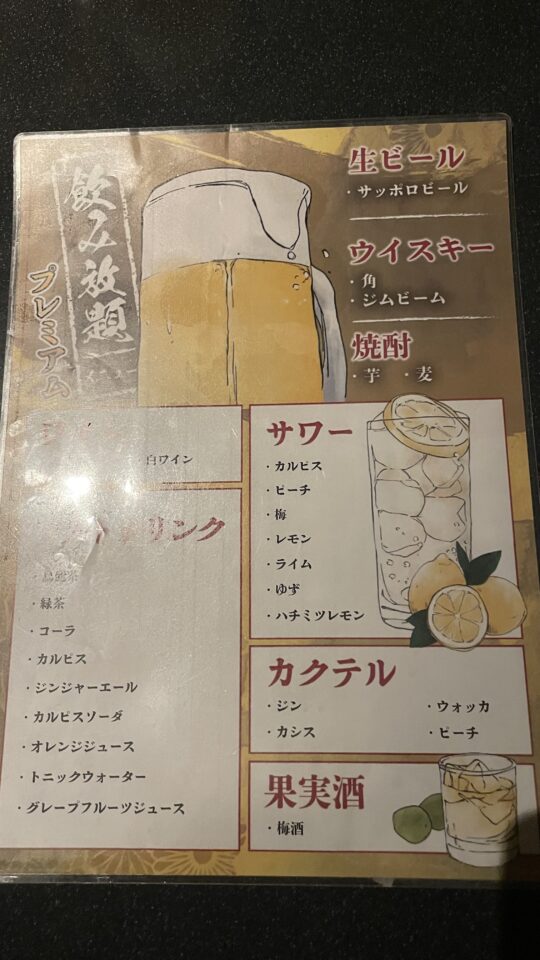 飲み放題
プレミアム
生ビール
・サッポロビール
ウイスキー
・角
・ジムビーム
焼酎
・芋 ・麦
ワイン
白ワイン
ドリンク
・烏龍茶
・緑茶
・コーラ
・カルピス
・ジンジャーエール
・カルピスソーダ
・オレンジジュース
・トニックウォーター
・グレープフルーツジュース
サワー
・カルピス
・ピーチ
・梅
・レモン
・ライム
・ゆず
・ハチミツレモン
カクテル
・ジン ・ウォッカ
・カシス ・ピーチ
果実酒
・梅酒